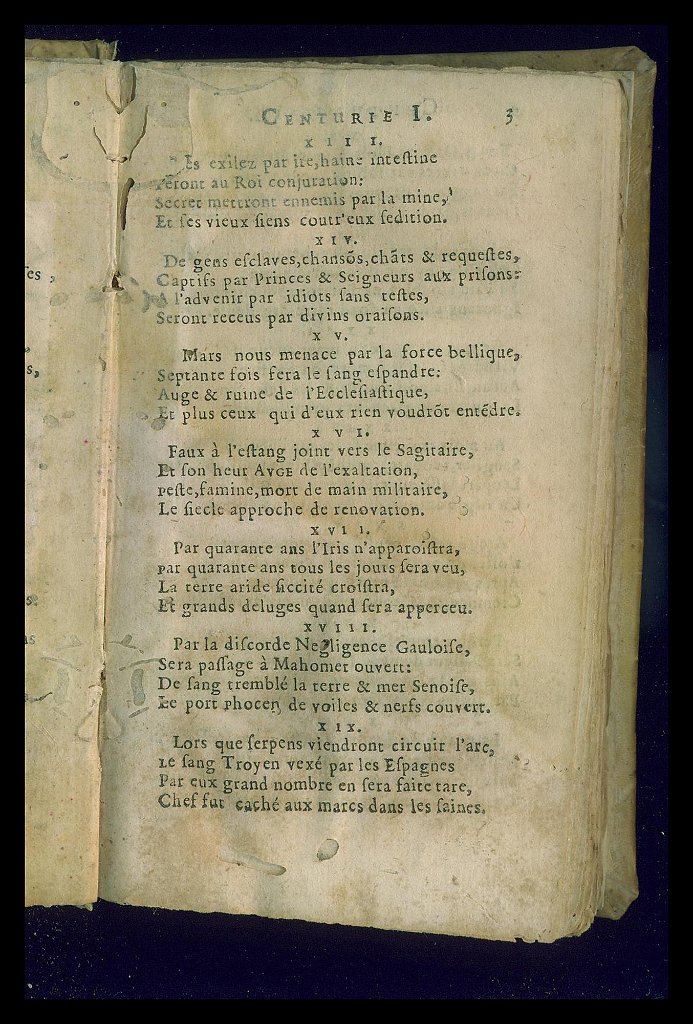 es ,
s,
s.
as
CENTURIE I. 3
XIII.
Les exilez par ire,haine inteſtine
Feront au Roi conjuration:
Secret mettront ennemis par la mine,
Et ſes vieux ſiens contr'eux ſedition.
XIV.
De gens eſclaves,chansõs,chãts & requeſtes,
Captifs par Princes & Seigneurs aux priſons:
A l'advenir par idiots ſans teſtes,
Seront receus par divins oraiſons.
XV.
Mars nous menace par la force bellique,
Septante fois fera le ſang eſpandre:
Auge & ruine de l'Eccleſiaſtique,
Et plus ceux qui d'eux rien voudrõt entẽdre.
XVI.
Faux à l'eſtang joint vers le Sagitaire,
Et ſon heur AVGE de l'exaltation,
peſte,famine,mort de main militaire,
Le ſiecle approche de renovation.
XVII.
Par quarante ans l'Iris n'apparoiſtra,
par quarante ans tous les jours ſera veu,
La terre aride ſiccité croiſtra,
Et grands deluges quand ſera apperceu.
XVIII.
Par la diſcorde Negligence Gauloiſe,
Sera paſſage à Mahomet ouvert:
De ſang tremblé la terre & mer Senoiſe,
Le port phocen de voiles & nerfs couvert.
XIX.
Lors que ſerpens viendront circuir l'arc,
Le ſang Troyen vexé par les Eſpagnes
Par eux grand nombre en ſera faite tare,
Chef fut caché aux marcs dans les ſaines.